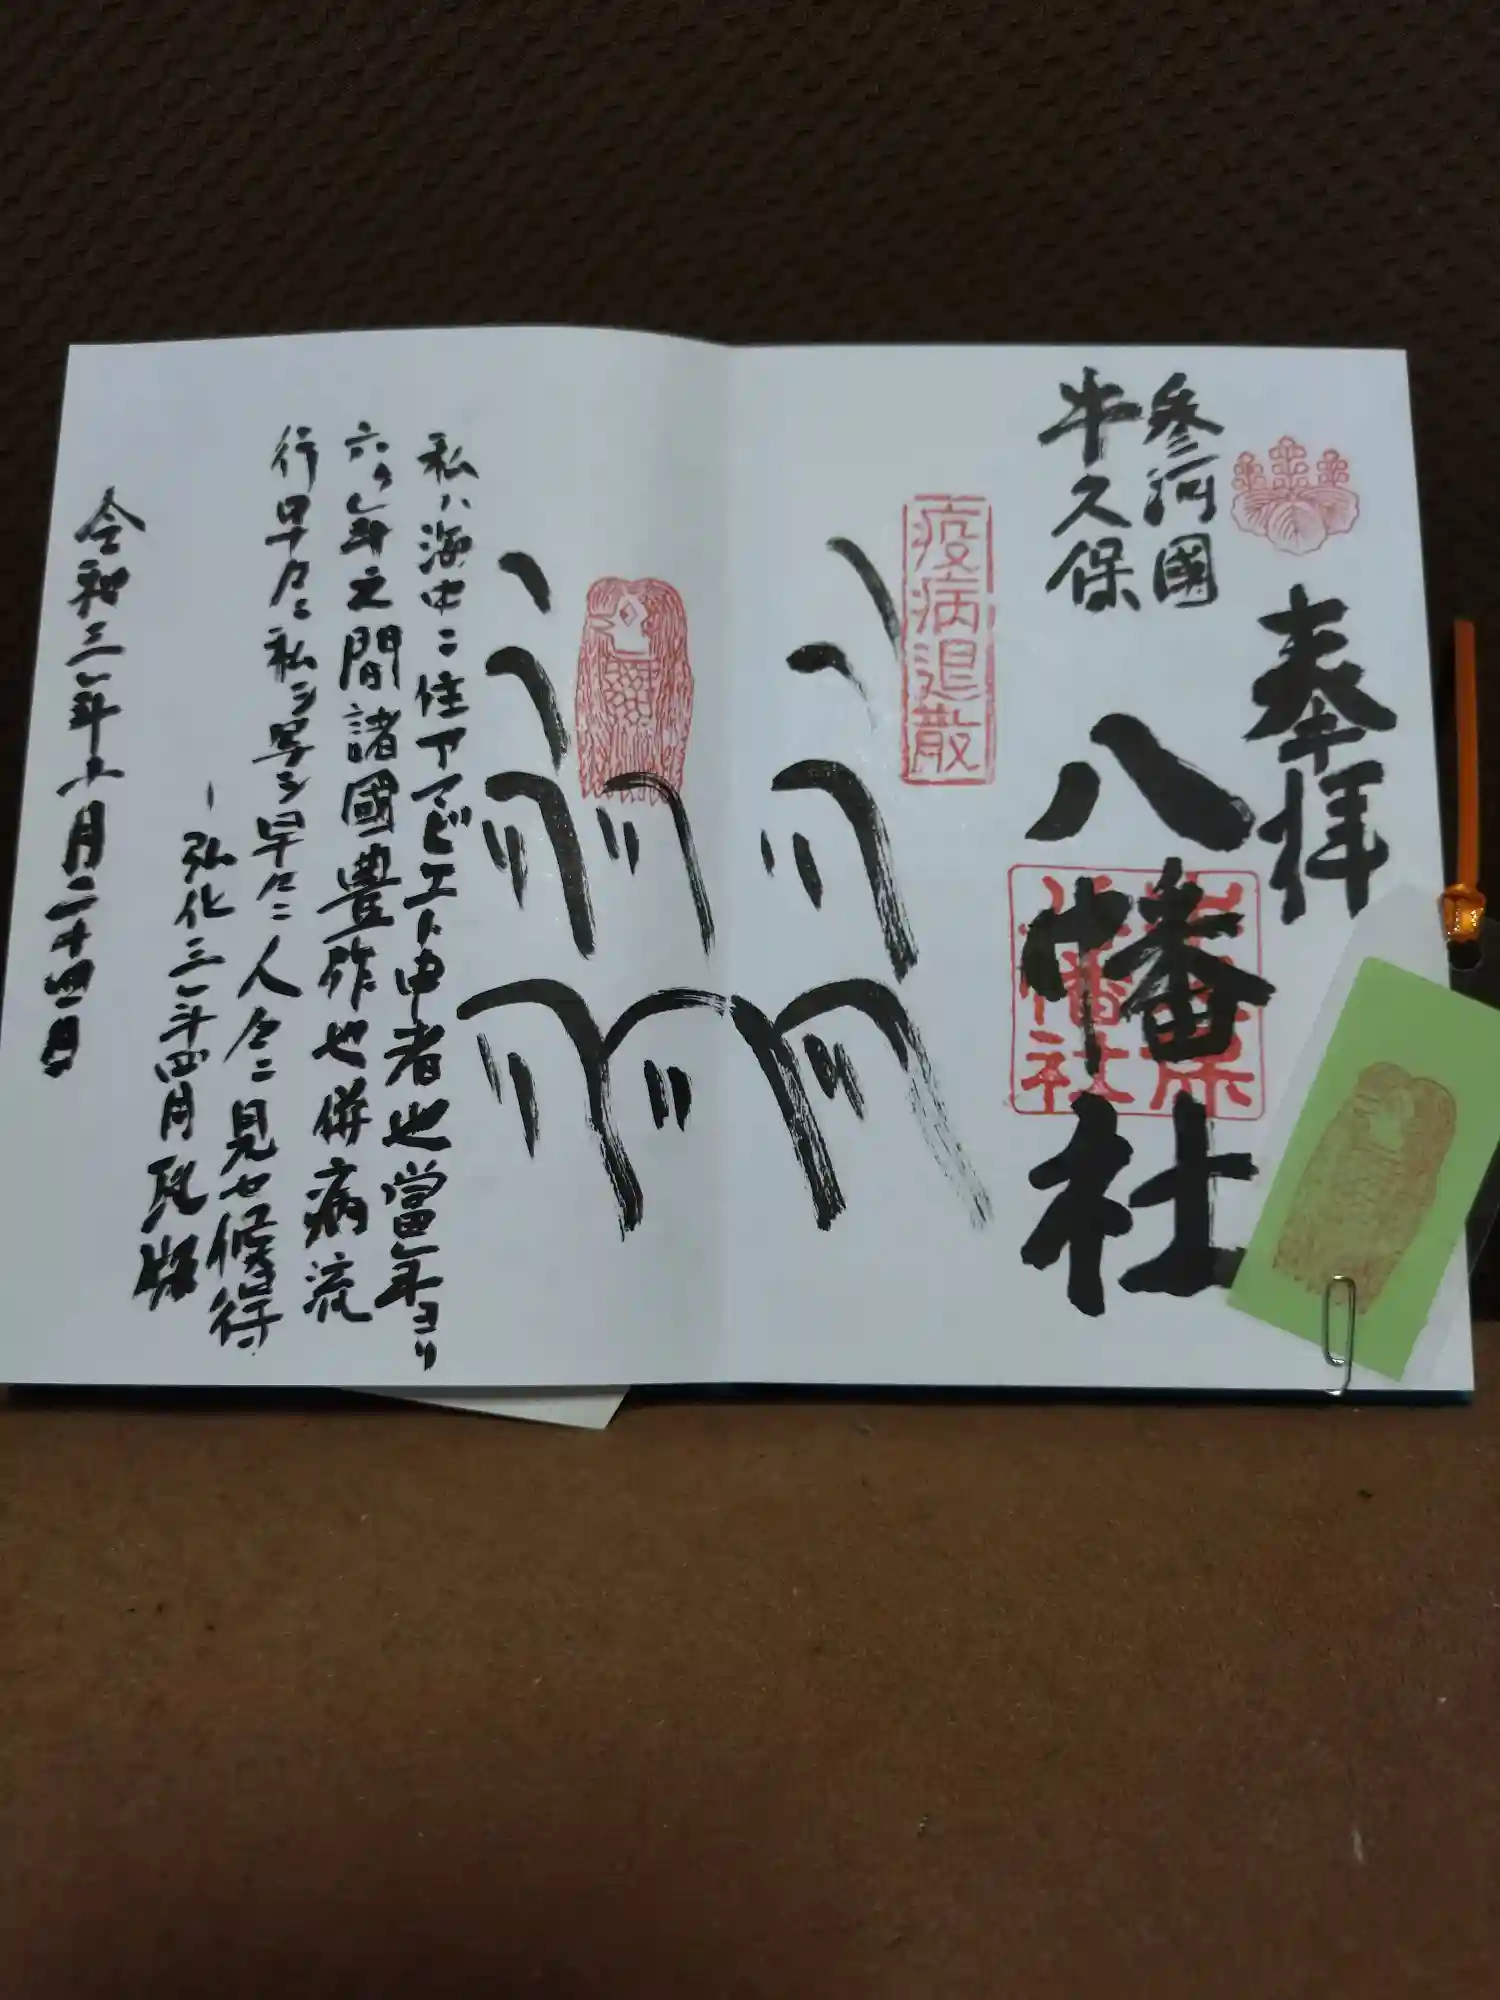 奉拝
參河國
牛久保
八幡社
八幡社
疫病退散
私ハ海中ニ住アマビエト申者也當年ヨリ
六ケ年之間諸國豊作也併病流
行早々ニ私ヲ写シ早々ニ人々ニ見セ候得
弘化三年四月
令和三年十月二十四日